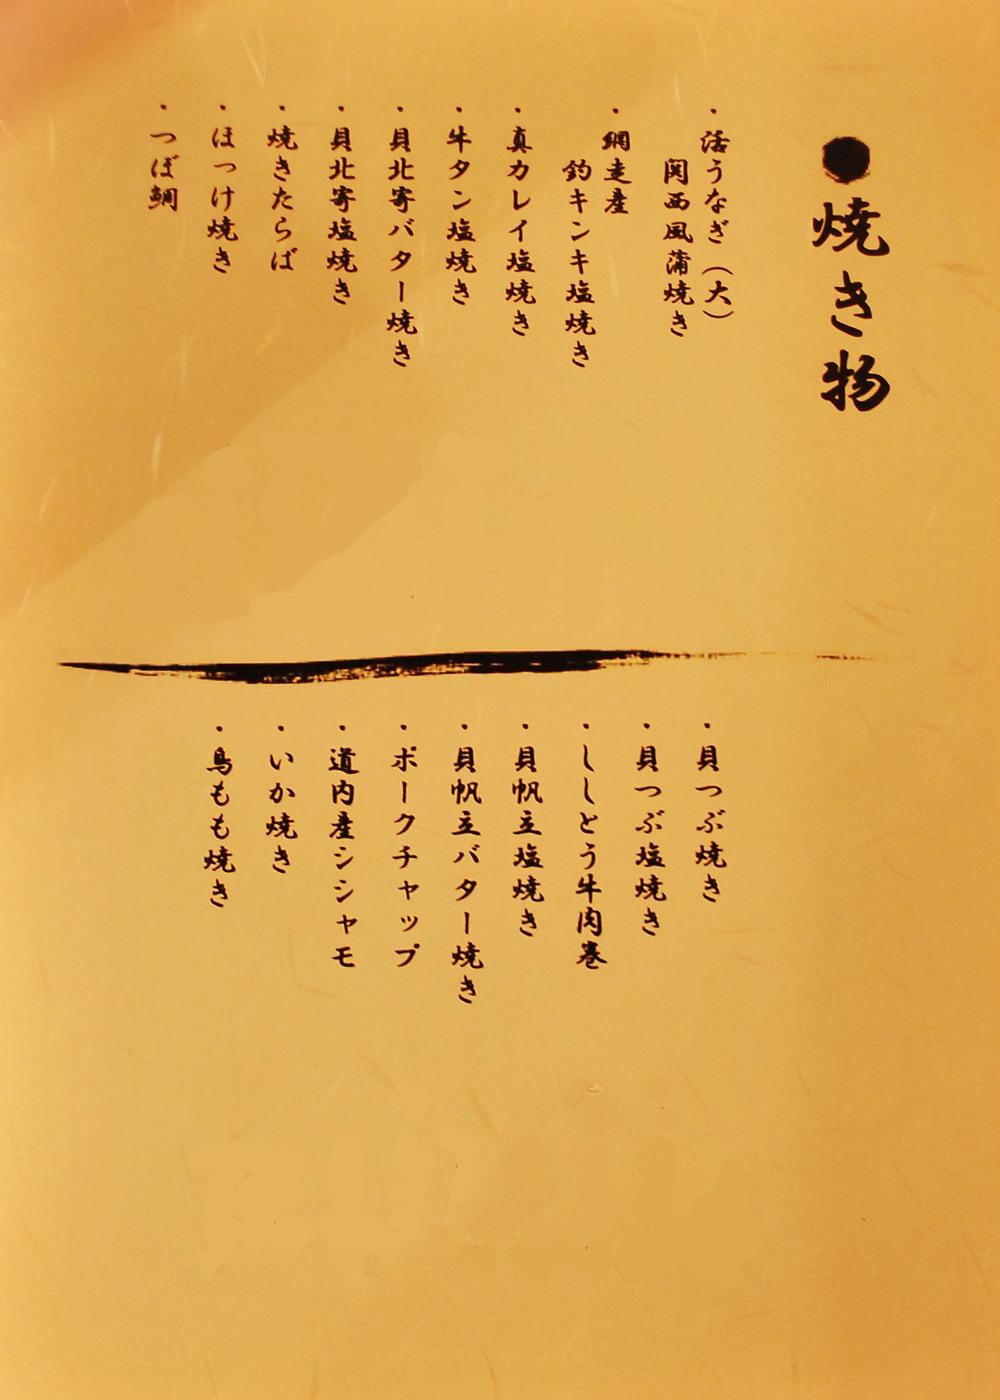 ●焼き物
・活うなぎ（大）
関西風蒲焼き
・網走産
釣キンキ塩焼き
・真カレイ塩焼き
・牛タン塩焼き
・貝北寄バター焼き
・貝北寄塩焼き
・焼きたらば
・ほっけ焼き
・つぼ鯛
・貝つぶ焼き
・貝つぶ塩焼き
・ししとう牛肉巻
・貝帆立塩焼き
・貝帆立バター焼き
・ポークチャップ
・道内産シシャモ
・いか焼き
・鳥もも焼き